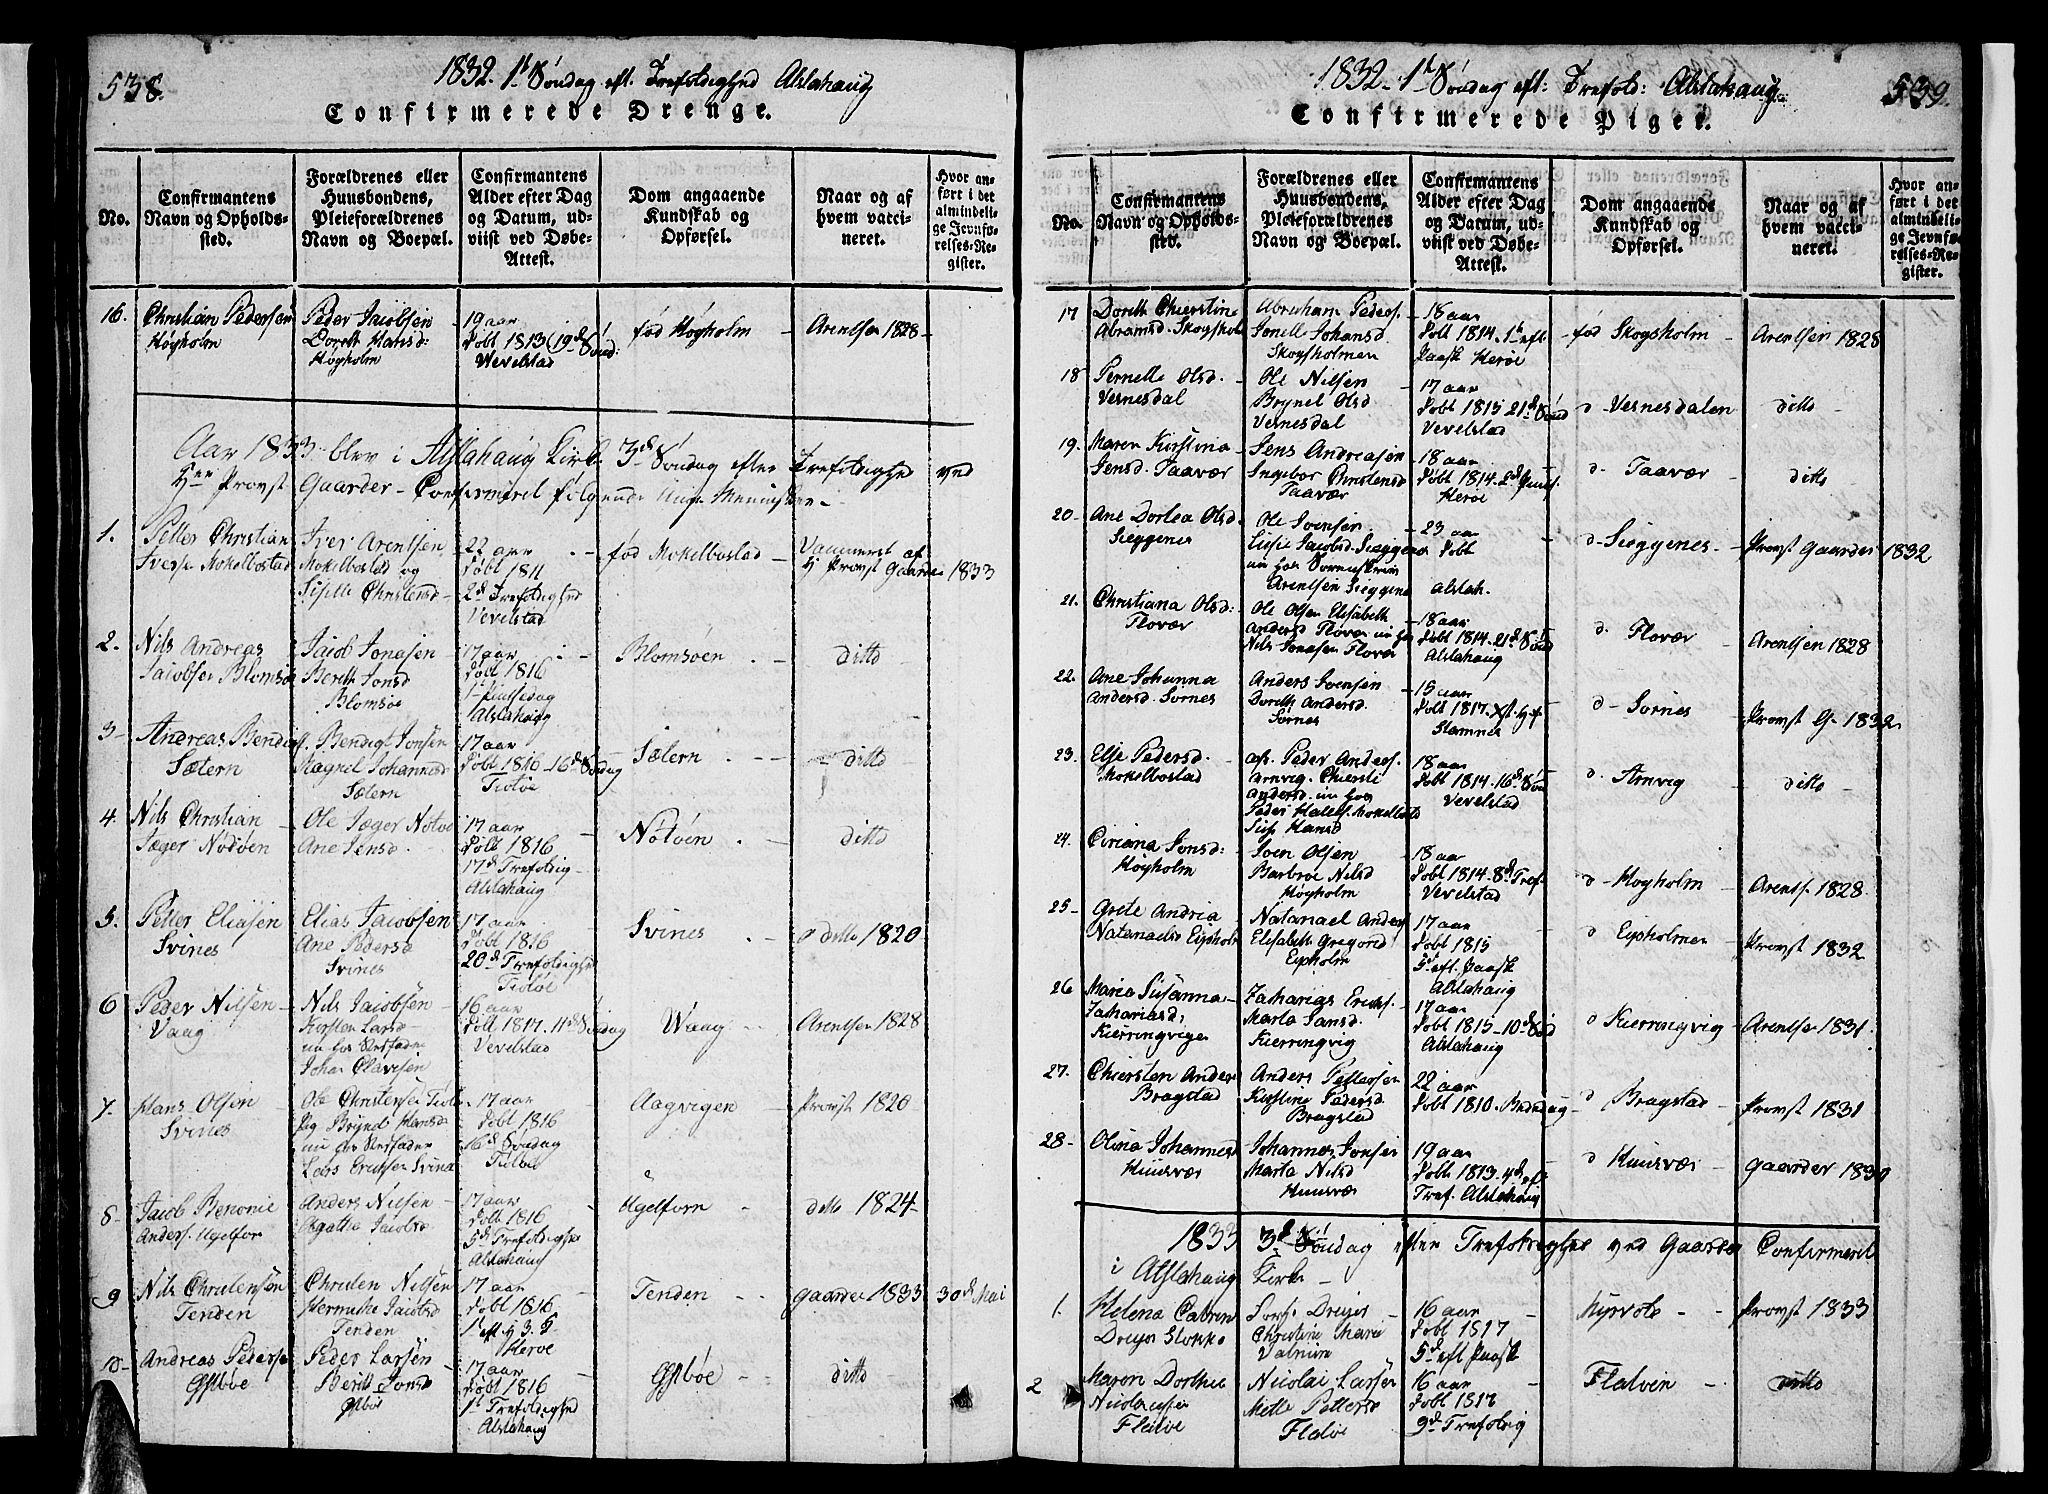 538.
1832. 1te Söndag eft. Trefoldighed Alstahaug
Confirmerede Drenge.
No.
Confirmantens Navn og Opholds-sted.
Forældrenes eller Huusbondens, Pleieforældrenes Navn og Boepæl.
Confirmantens Alder efter Dag og Datum, ud-viist ved Døbe-Attest.
Dom angaaende Kundskab og Opførsel.
Naar og af hvem vacci-neret.
Hvor an-ført i det almindeli-ge Jevnfø-relses-Re-gister.
16. Christian Pedersen Høgholm
Peder Jacobsen Doreth Hansd: Høgholm
19 aar Døbt 1813 (19de Sønd: Vevelstad
fød Høgholm
Arentsen 1828
Aar 1833 blev i Alstahaug Kirke 3de Söndag efter Trefoldighed ved
Hr Provst Gaarder Confirmeret følgende Unge Mennisker
1. Petter Christian Iversen Mokelbostad
Iver Arentsen Mokelbostad og Siselle Christensd
22 aar Døbt 1811 2de Trefoldighed Vevelstad
fød Mokelbostad
Vaccineret af H Provst Gaarder 1833
2. Nils Andreas Jacobsen Blomsø
Jacob Jonasen Bereth Jonsd Blomsöe
17 aar Døbt 1816 1 Pintsedag Alstahaug
Blomsöen
ditto
3 Andreas Bendigts. Sætern
Bendigt Jonsen Magnel Johannesd Sætern
17 aar Døbt 1816 16de Søndag Tiøtøe
Sætern
ditto
4. Nils Christian Jæger Nödöen
Ole Jæger Nötvö Ane Jensd
17 aar Døbt 1816 17de Trefoldig Alstahaug
Nötöen
ditto
5. Petter Eliasen Svines
Elias Jacobsen Ane Pedersd Svines
17 aar Døbt 1816 20de Trefoldighed Tiøtøe
Svines
ditto 1820
6 Peder Nilsen Vaag
Nils Jacobsen Kirsten Larsd nu hos Stedfader Johan Olavisen
16 aar Døbt 1817. 11de Søndag Vevelstad
Waag
Arentsen 1828
7. Hans Olsen Svines
Ole Christensen Tiøtø Pig Brynel Hansd nu hos Stedfader Lars Ericksen Svines
17 aar Døbt 1816 16de Søndag Tiøtøe
Aagvigen
Provst 1820
8 Jacob Benonie Anders. Ugelfor
Anders Nilsen Agatha Jacobsd
17 aar Døbt 1816 5de Trefoldighed Alstahaug
Ugelforn
ditto 1824
9 Nils Christensen Tenden
Christen Nilsen Hermicke Jacobsd Tenden
17 aar Døbt 1816 1te eft H 3. K Herøe
Tenden
gaarder 1833 30de Mai
10 Andreas Pedersen
Peder Larsen Berith Jonsd
17 aar Døbt 1816 1te Trefoldighed Alstahaug
ditto
1832. 1te Söndag eft: Trefold: Alstahaug.
539.
Confirmerede Piger.
No.
Confirmantens Navn og Opholds-sted.
Forældrenes eller Huusbondens, Pleieforældrenes Navn og Boepæl.
Confirmantens Alder efter Dag og Datum, ud-viist ved Døbe-Attest.
Dom angaaende Kundskab og Opførsel.
Naar og af hvem vacci-neret.
Hvor an-ført i det almindeli-ge Jevnfø-relses-Re-gister.
17 Doreth Chierstine Abramsd. Skogsholm
Abraham Peders. Jonelle Johansd. Skogsholmen
18 aar Døbt 1814. 1te eft Paask Herøe
fød Skogsholm
Arentsen 1828
18 Pernelle Olsd. Vernesdal
Ole Nilsen Brynel Olsd Vernesdal
17 aar Døbt 1815 21de Sönd Vevelstad
d Vernesdalen
ditto
19. Maren Kirstina Jensd Taavær
Jens Andreasen Ingebor Christensd Taavær
18 aar Døbt 1814. 2de Pints. Herøe
d. Taavær
ditto
20 Ane Dortea Olsd. Sieggenes
Ole Svensen Lisie Jacobsd. Sieggenes nu hos Arentsen Sieggenes
23 aar Døbt Alstah.
d. Sieggenes.
Provst Gaarder 1832
21. Christiana Olsd: Flovær
Ole Olsen Elisabeth Andersd Flovær nu hos Nils Jonasen Flovær
18 aar Døbt 1814. 21de Sönd Alstahaug
d. Flovær
Arentsen 1828
22. Ane Johanna Andersd Sörnes
Anders Svensen Doreth Andersd. Sörnes
15 aar Døbt 1817. Stamnes
d Sörnes
Provst G 1832
23. Else Pedersd. Mokelbostad
af: Peder Anders. Arnvig. Chiersti Andersd. nu hos Peder Hallefs. Mokelbostd Hansd
18 aar Døbt 1814. 16de Sön Vevelstad
d. Arnvig
ditto
24. Ciriana Svensd: Høgholm
Sven Olsen Barbroe Nilsd Høgholm
18 aar Døbt 1814. 8de Tref Vevelstad
d Høgholm
Arents. 1828.
25 Grete Andria Natanaelsd Eipholm
Natanael Anders Elisabeth Gregorsd Eipholm
17 aar Døbt 1815 5te eft. Paask Alstahaug
d Eipholmen
Provst 1832
26 Maria Susanna Zachariasd, Kierringvigen
Zacharias Ericks. Marta Jansd. Kierringvig
17 aar Døbt 1815 10de Sönd Alstahaug
d Kierringvig
Arentsen 1831.
27. Chiersten Anders Bragstad
Anders Pettersen Kirstine Pedersd Bragstad
22 aar Døbt 1810. Bededag
d Bragstad
Provst 1831
28 Olina Johannesd Huusvær
Johannes Jonsen Marta Nilsd Huusvær
19 aar Døbt 1813. 4de eft Tref. Alstahaug
d Huusvær
gaarder 1830
1833 3de Söndag efter Trefoldighed ved Gaarder Confirmeret
i Alstahaug Kirke
1. Helena Catrin Dreyer Slokke
Dreyer Christine Marie
16 aar Døbt 1817 5te eft Paask
Provst 1833
2 Maren Dorthea Nicolausen Flatöe
Nicolai Larsen Mette Pettersd Flatöe
16 aar Døbt 1817 9de Trefoldig
Flatöen
ditto